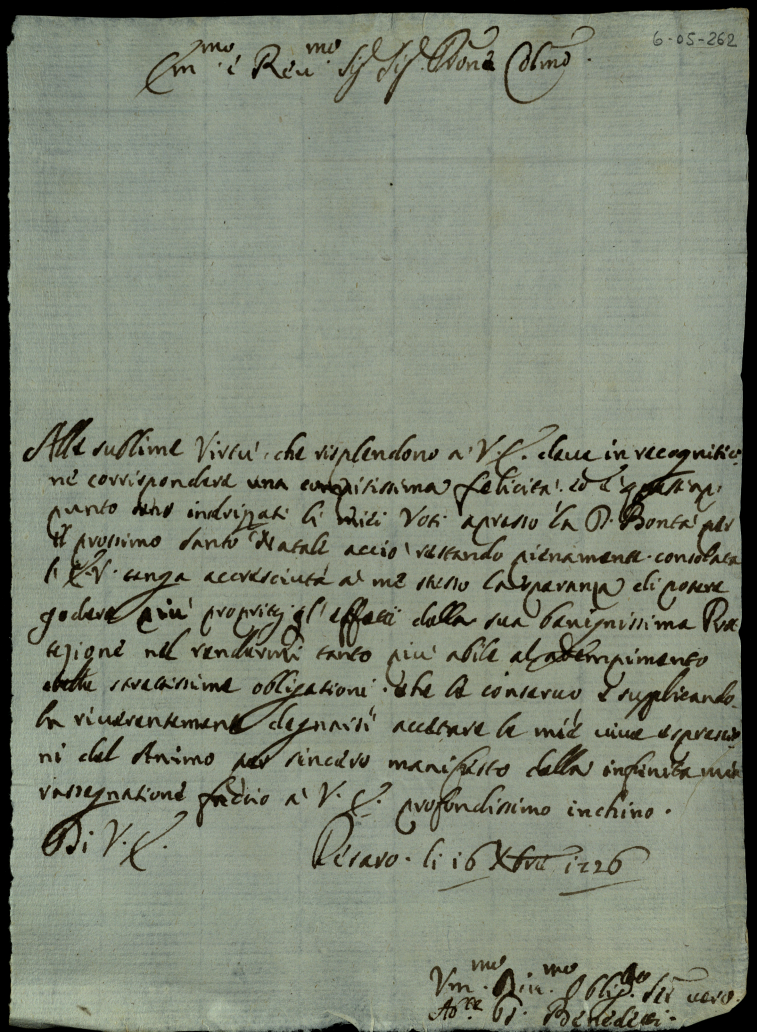 6-05-262
Em.mo e Reu.mo Sig.r Sig.r Prone Colmo.
Alle sublime Virtu, che risplendono à V. E. deue in recognitio
ne corrispondere una compitissima felicità. ed à quest'ap
punto indrizati li miei Voti apresso la D. Bontà per
il prossimo Santo Natale acciò restando pienamente consolata
l'E. V. venga accresciuta à me stesso la speranza di potere
godere più propritij gl'effetti della sua benignissima Pro
tezione nel rendermi tanto più abile al adempimento
delle strettissime obligationi che le conseruo e suplicando
la riuerentemente degnarsi accettare le mie viue espressio
ni del Animo per sincero manifesto della infinita mia
rassegnatione faccio à V. E. profondissimo inchino.
Di V. E.
Pesaro. li 16 Xbre 1726
Vm.mo Diu.mo Oblig.mo Ser. uero.
Benedetti.